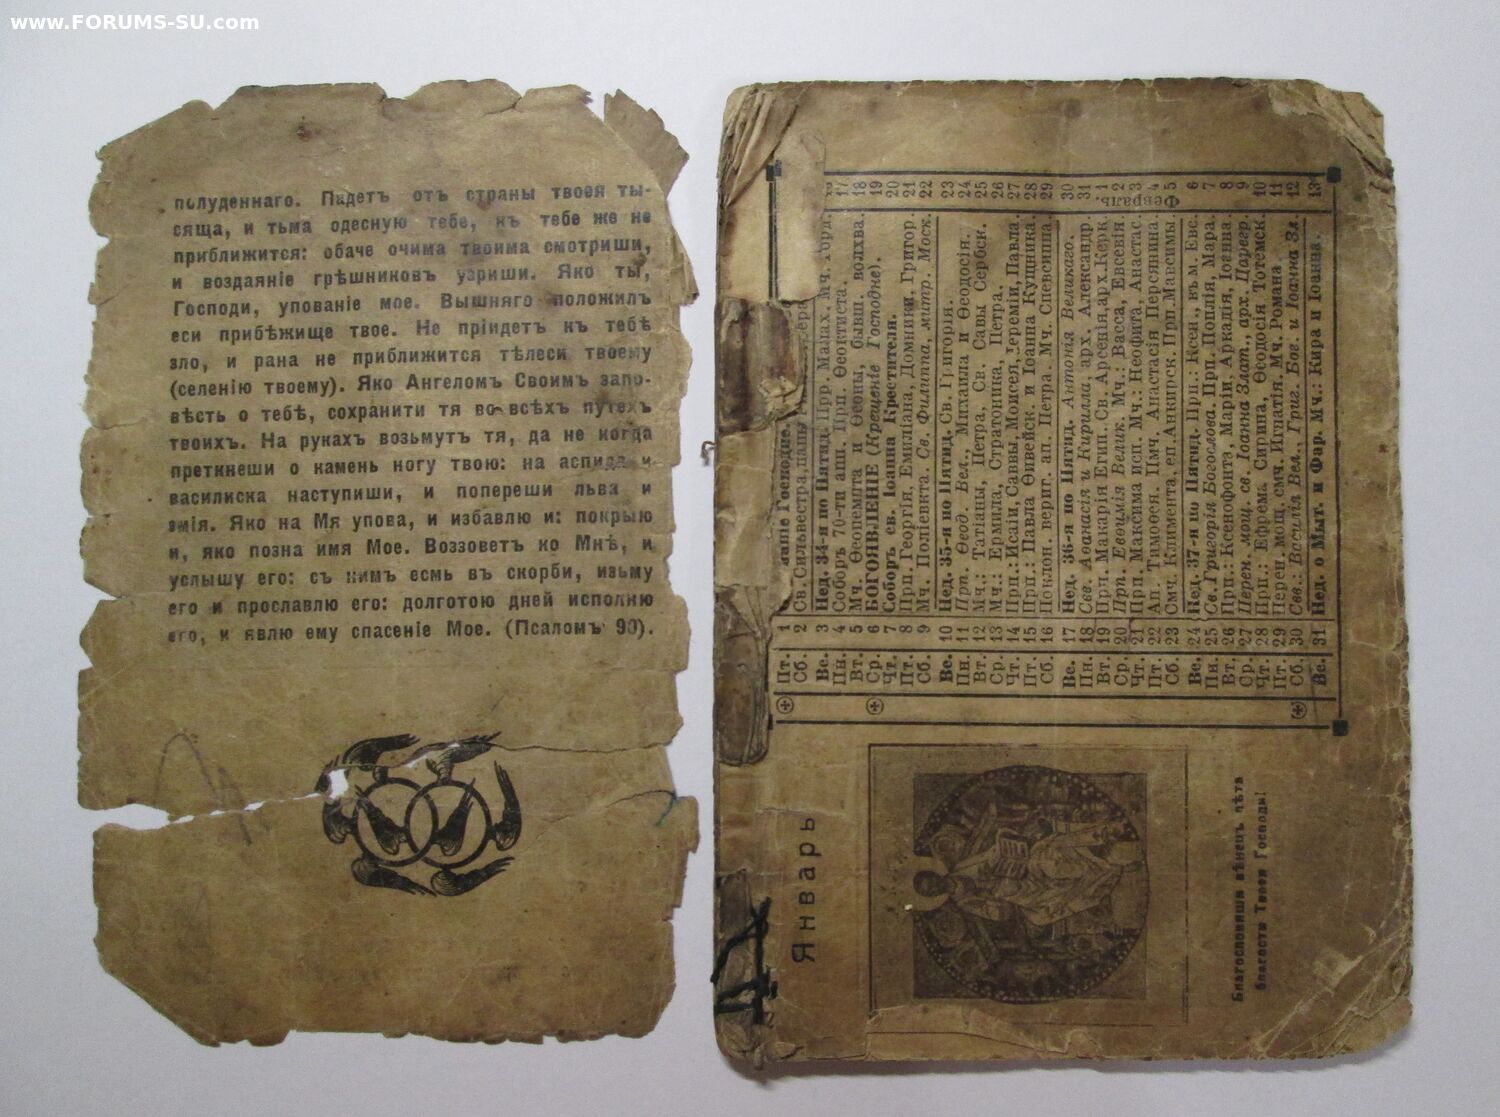 www.FORUMS-SU.com
полуденнаго. Падетъ отъ страны твоея ты-
сяща, и тьма одесную тебе, къ тебе же не
приближится: обаче очима твоима смотриши,
и воздаяніе грѣшниковъ узриши. Яко ты,
Господи, упованіе мое. Вышняго положилъ
еси прибѣжище твое. Не пріидетъ къ тебѣ
зло, и рана не приближится тѣлеси твоему
(селенію твоему). Яко Ангеломъ Своимъ запо-
вѣсть о тебѣ, сохранити тя во всѣхъ путехъ
твоихъ. На рукахъ возьмутъ тя, да не когда
преткнеши о камень ногу твою: на аспида и
василиска наступиши, и попереши льва и
змія. Яко на Мя упова, и избавлю и: покрыю
и, яко позна имя Мое. Воззоветъ ко Мнѣ, и
услышу его: съ нимъ есмь въ скорби, изьму
его и прославлю его: долготою дней исполню
его, и явлю ему спасеніе Мое. (Псаломъ 90).
Январь
Благословиши вѣнецъ лѣта
благости Твоея Господи!
Пт. 1 Господне.
Сб. 2 Св. Сильвестра, папы
Вс. 3 Нед. 34-я по Пятид. Прр. Малах. Мч. Горд.
Пн. 4 Соборъ 70-ти апп. Прп. Ѳеоктиста. 17
Вт. 5 Мч. Ѳеопемпта и Ѳеоны, бывш. волхва. 18
Ср. 6 БОГОЯВЛЕНІЕ (Крещеніе Господне). 19
Чт. 7 Соборъ св. Іоанна Крестителя. 20
Пт. 8 Прп. Георгія, Емиліана, Домники, Григор. 21
Сб. 9 Мч. Поліевкта. Св. Филиппа, митр. Моск. 22
Вс. 10 Нед. 35-я по Пятид. Св. Григорія. 23
Пн. 11 Прп. Ѳеод. Вел., Михаила и Ѳеодосія. 24
Вт. 12 Мч.: Татіаны, Петра, Св. Савы Сербск. 25
Ср. 13 Мч.: Ермила, Стратоника, Петра. 26
Чт. 14 Прп.: Исаіи, Саввы, Моисея, Іереміи, Павла. 27
Пт. 15 Прп.: Павла Ѳивейск. и Іоанна Кущника. 28
Сб. 16 Поклон. вериг. ап. Петра. Мч. Спевсиппа. 29
Вс. 17 Нед. 36-я по Пятид. Антонія Великаго. 30
Пн. 18 Свв. Аѳанасія и Кирилла, арх. Александр. 31
Февраль
Вт. 19 Прп. Макарія Егип. Св. Арсенія, арх. Керк. 1
Ср. 20 Прп. Евѳимія Велик. Мч.: Васса, Евсевія 2
Чт. 21 Прп. Максима исп. Мч.: Неофита, Анастас. 3
Пт. 22 Ап. Тимоѳея. Пмч. Анастасія Персянина. 4
Сб. 23 Смч. Климента, еп. Анкирск. Прп. Мавсимы. 5
Вс. 24 Нед. 37-я по Пятид. Прп.: Ксен., въ м. Евс. 6
Пн. 25 Св. Григорія Богослова. Прп. Поплія, Мара. 7
Вт. 26 Прп.: Ксенофонта, Маріи, Аркадія, Іоанна 8
Ср. 27 Перен. мощ. св. Іоанна Злат., арх. Царегр. 9
Чт. 28 Прп.: Ефрема Сирина, Ѳеодосія Тотемск. 10
Пт. 29 Перен. мощ. смч. Игнатія. Мч. Романа. 11
Сб. 30 Свв.: Василія Вел., Григ. Бог. и Іоанна Зл. 12
Вс. 31 Нед. о Мыт. и Фар. Мч.: Кира и Іоанна. 13